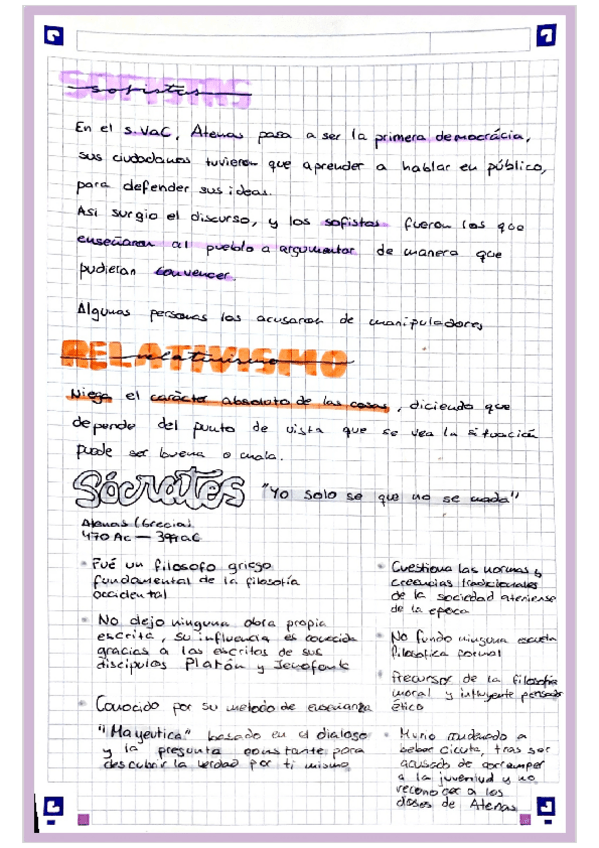 SOFISTAS
sofistas
En el s.VaC, Atenas pasa a ser la primera democrácia,
sus ciudadanos tuvieron que aprender a hablar en público,
para defender sus ideas.
Asi surgio el discurso, y los sofistas fueron los que
enseñaron al pueblo a argumentar de manera que
pudieran convencer.
Algunas personas los acusaron de manipuladores
RELATIVISMO
relativismo
Niega el carácter absoluto de las cosas, diciendo que
depende del punto de vista que se vea la situación
puede ser buena o mala.
Sócrates "Yo solo se que no se nada"
Atenas (Grecia).
470 Ac — 399 a.C
Fué un filosofo griego
fundamental de la filosofía
occidental
No dejo ninguna obra propia
escrita, su influencia es conocida
gracias a los escritos de sus
discipulos Platón y Jenofonte
Conocido por su metodo de enseñanza
"Mayeutica" basado en el dialogo
y la pregunta constante para
descubrir la verdad por ti mismo
Cuestiona las normas y
creencias tradicionales
de la sociedad ateniense
de la epoca
No fundo ninguna escuela
filosofica formal
Precursor de la filosofía
moral y influyente pensador
ético
Murio condenado a
beber cicuta, tras ser
acusado de corromper
a la juventud y no
reconocer a los
dioses de Atenas